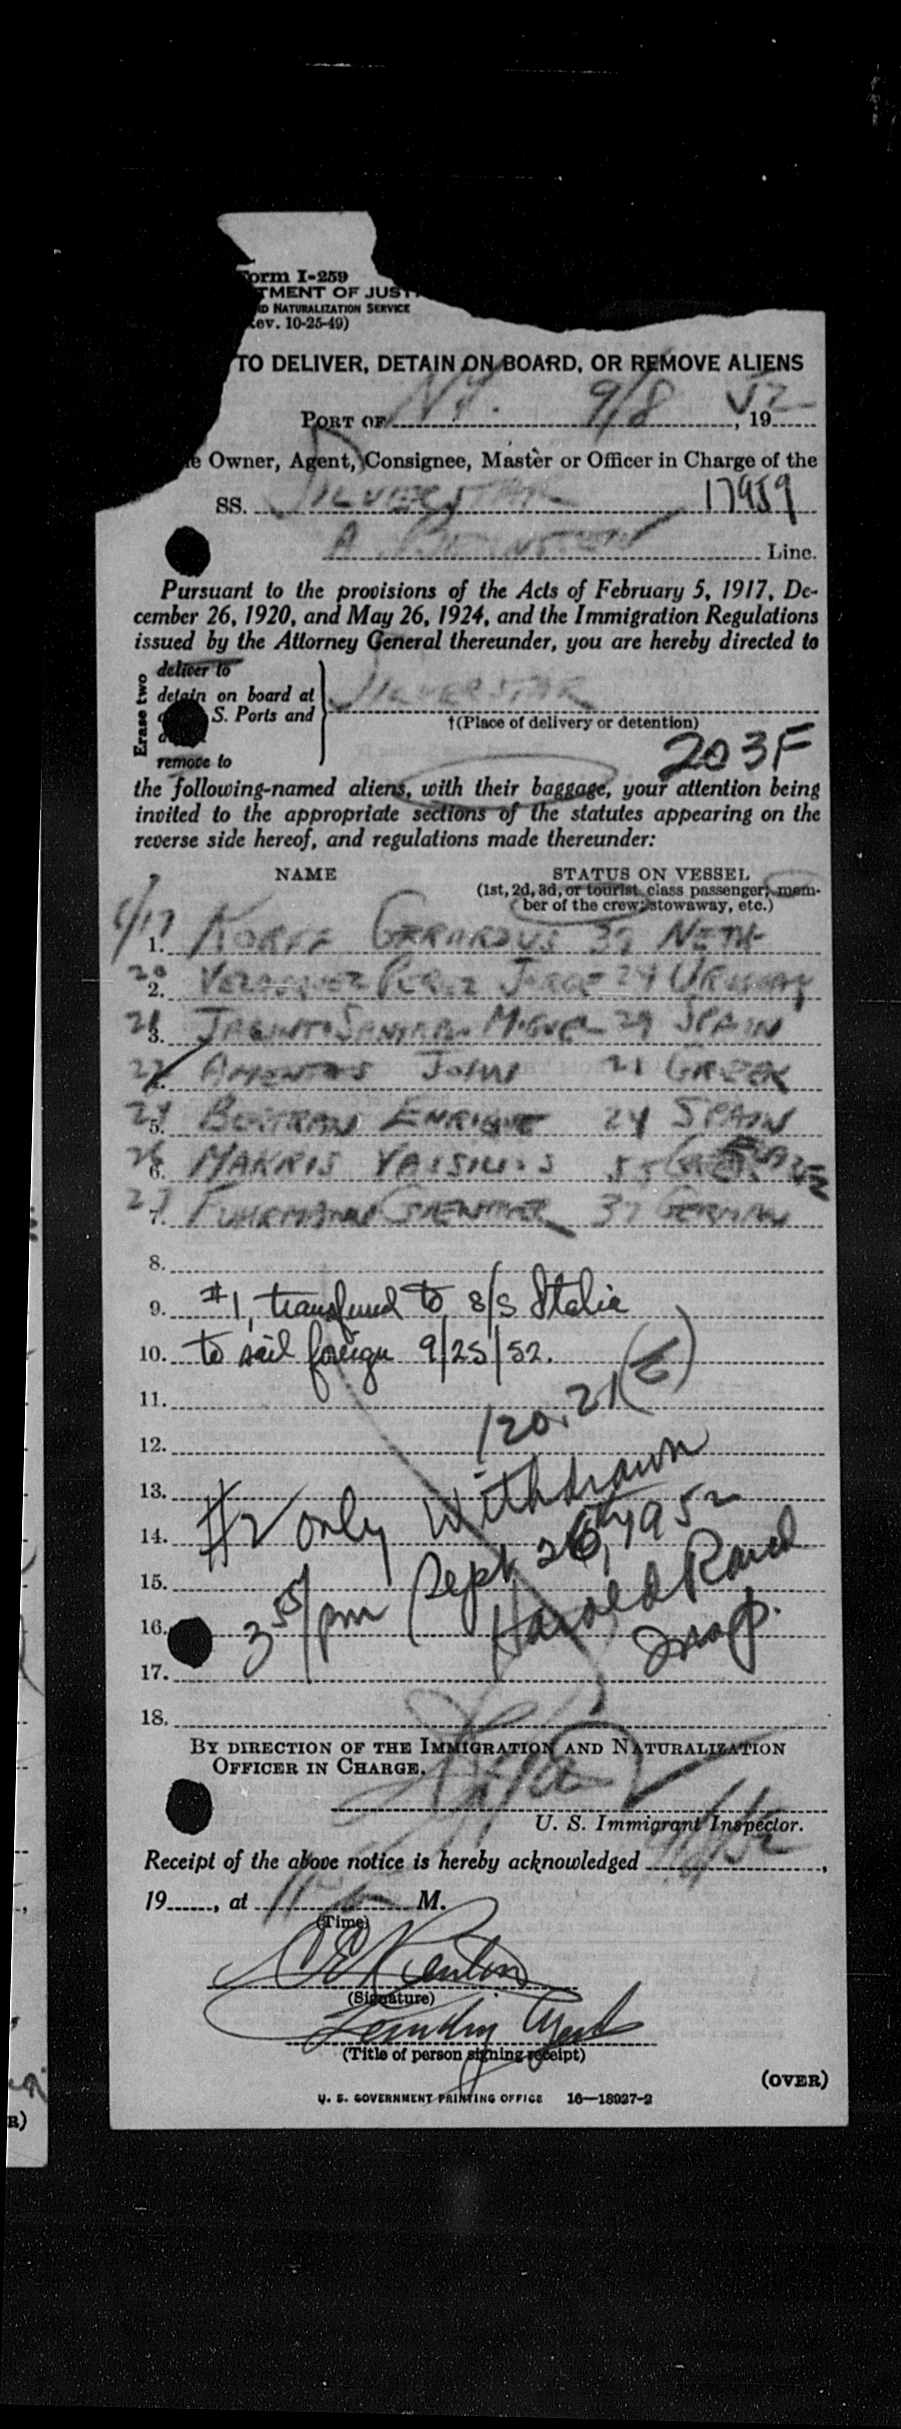 Form I-259
TMENT OF JUST
ND NATURALIZATION SERVICE
ev. 10-25-49)
TO DELIVER, DETAIN ON BOARD, OR REMOVE ALIENS
PORT OF N.Y. 9/8, 1952
e Owner, Agent, Consignee, Master or Officer in Charge of the
SS. SILVERSTAR 17959
A. Line.
Pursuant to the provisions of the Acts of February 5, 1917, De-
cember 26, 1920, and May 26, 1924, and the Immigration Regulations
issued by the Attorney General thereunder, you are hereby directed to
Erase two
deliver to
detain on board at
S. Ports and
remove to
SILVERSTAR
†(Place of delivery or detention)
203F
the following-named aliens, with their baggage, your attention being
invited to the appropriate sections of the statutes appearing on the
reverse side hereof, and regulations made thereunder:
NAME STATUS ON VESSEL
(1st, 2d, 3d, or tourist class passenger; mem-
ber of the crew; stowaway, etc.)
1. KORFF GERARDUS 39 NETH
20 2. VELASQUEZ PEREZ JORGE 24 URUGUAY
21 3. MIGUEL 29 SPAIN
22 AMENTAS JOHN 21 GREEK
24 5. BELTRAN ENRIQUE 24 SPAIN
26 6. MAKRIS VASSILIOS 55
27 7. FUHRMANN GUENTHER 37 GERMAN
8.
9. #1, transferred to S/S Italia
10. to sail foreign 9/25/52.
11. 120.21
12.
13. #2 only Withdrawn
14. Sept 26, 1952
15. 3 55/pm Harold Rand
16. Insp.
17.
18.
BY DIRECTION OF THE IMMIGRATION AND NATURALIZATION
OFFICER IN CHARGE.
U. S. Immigrant Inspector.
Receipt of the above notice is hereby acknowledged
19, at M.
(Time)
(Signature)
Agent
(Title of person signing receipt)
(OVER)
U. S. GOVERNMENT PRINTING OFFICE 16—18927-2